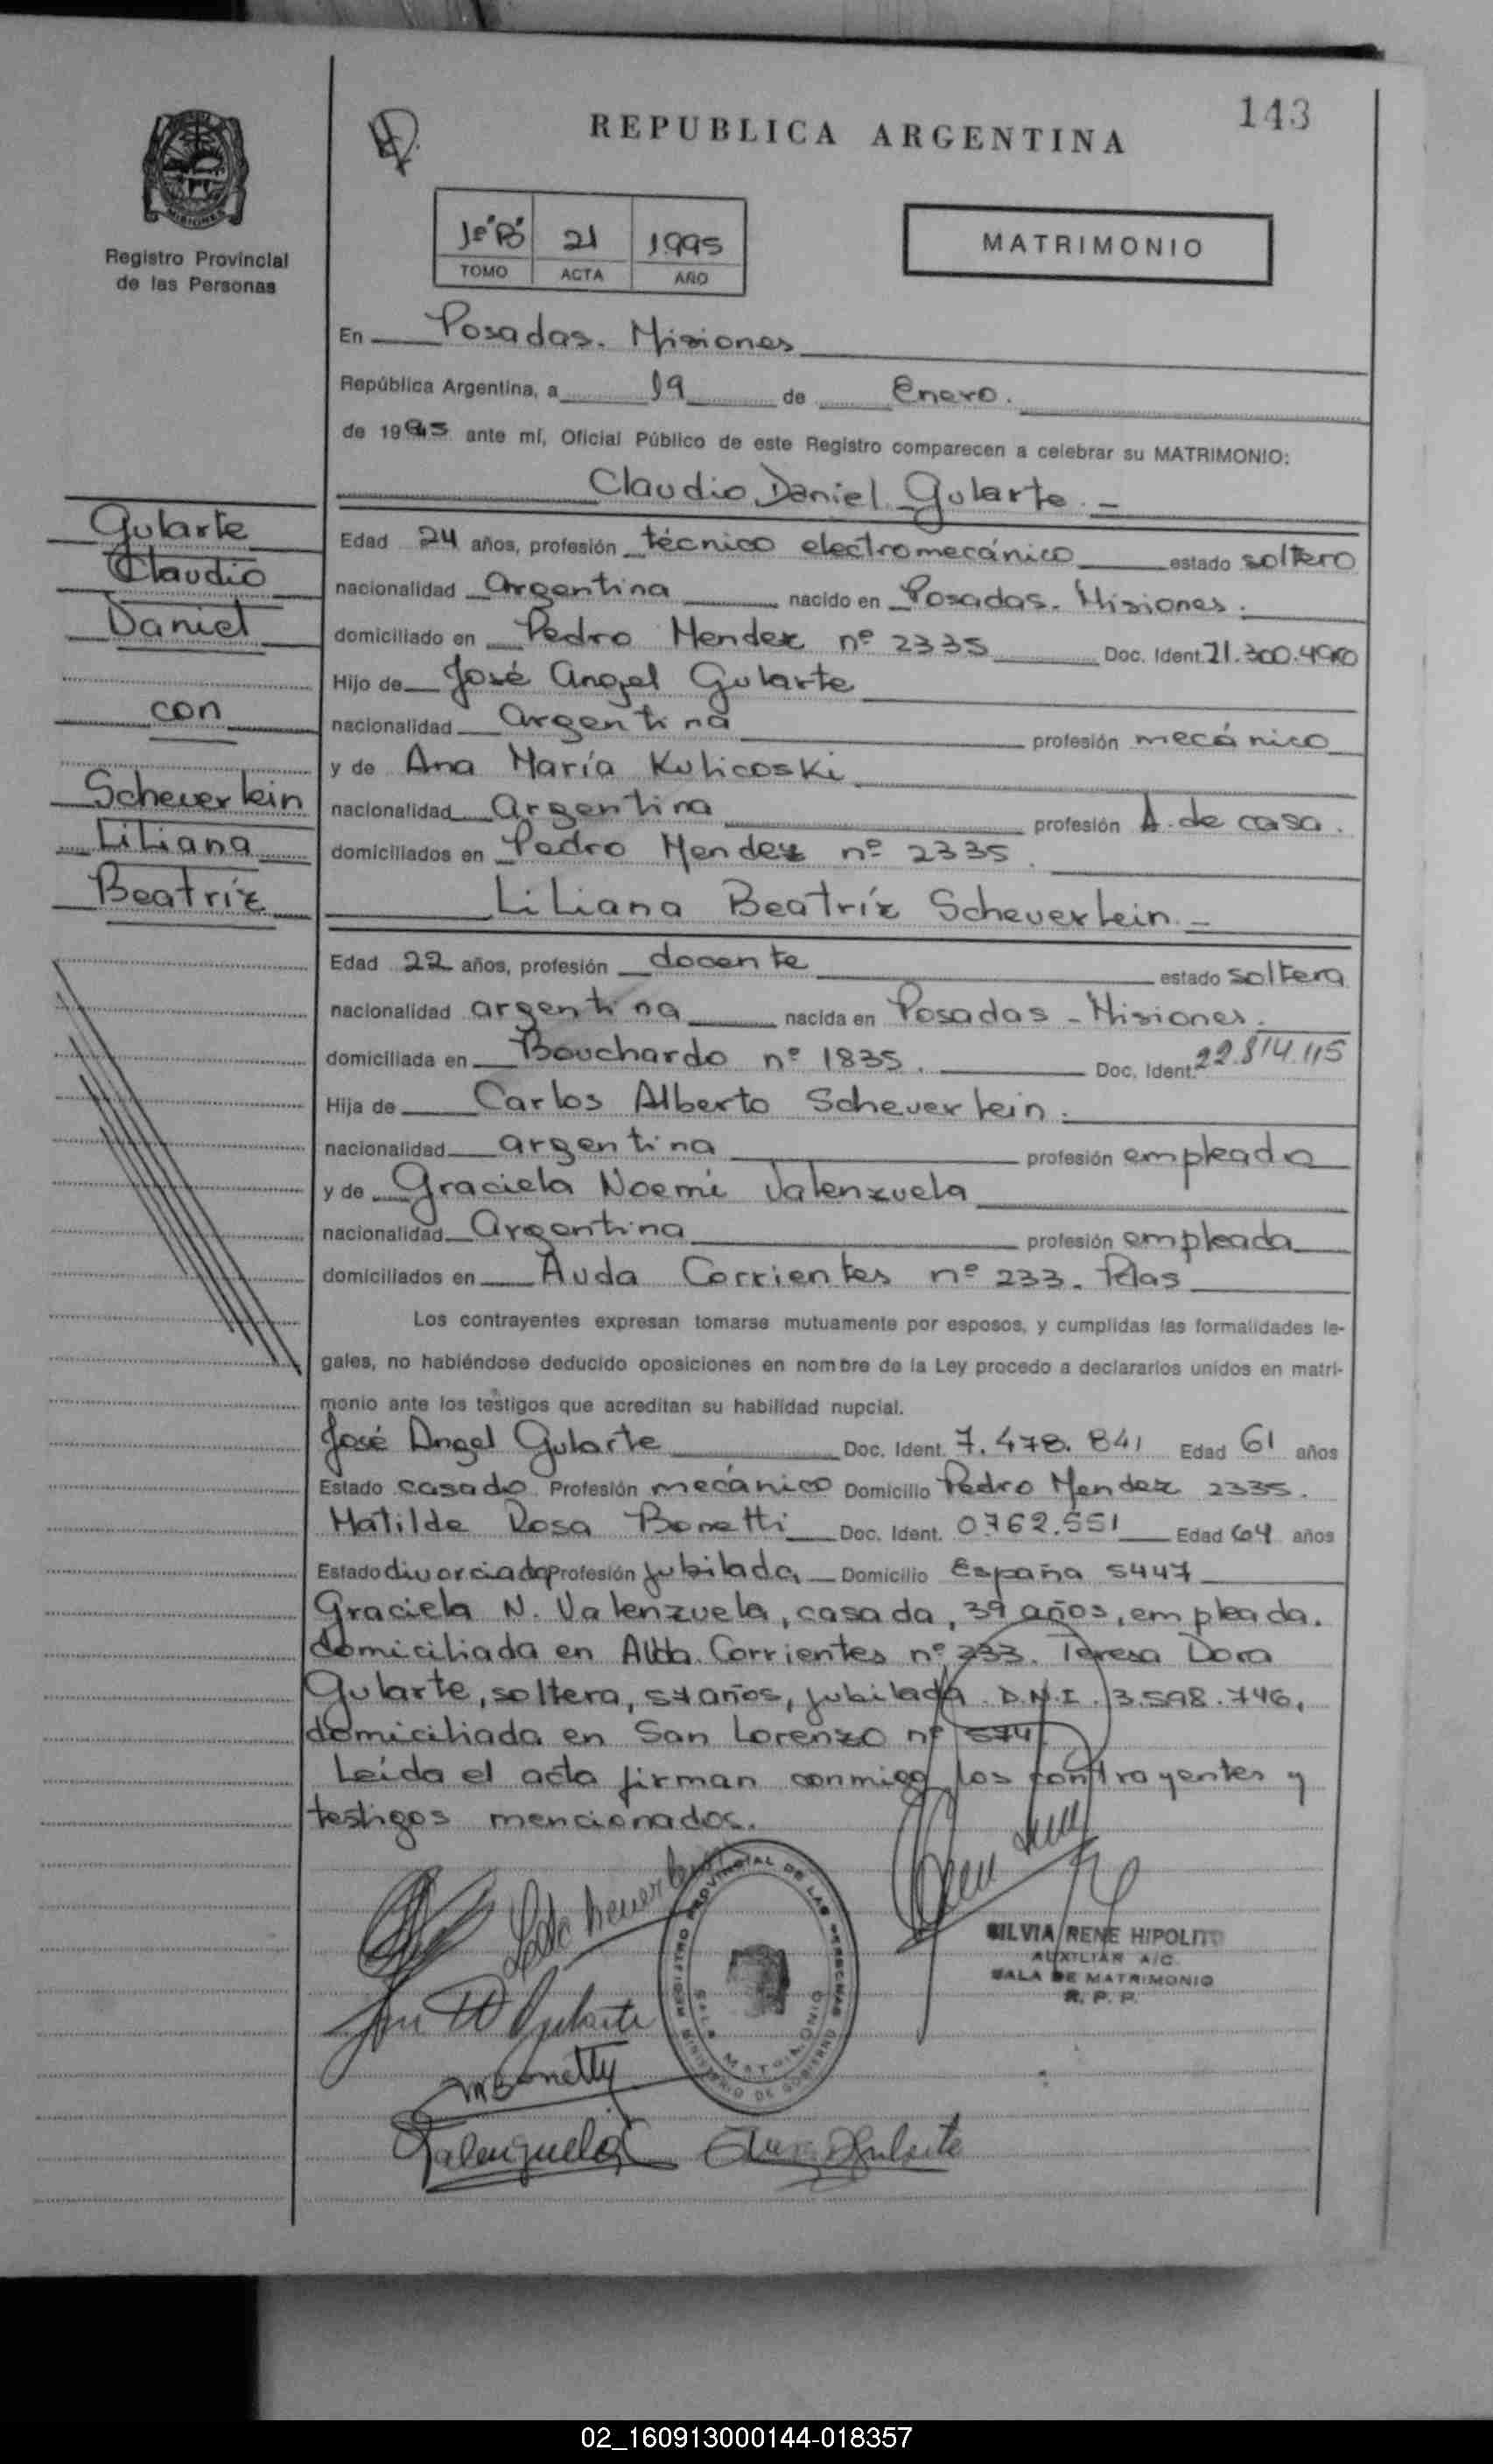 143
REPUBLICA ARGENTINA
MISIONES
Registro Provincial
de las Personas
1º"B" 21 1995
TOMO ACTA AÑO
MATRIMONIO
En Posadas. Misiones
República Argentina, a 19 de Enero.
de 1995 ante mí, Oficial Público de este Registro comparecen a celebrar su MATRIMONIO:
Claudio Daniel Gularte. -
Gularte
Claudio
Daniel
con
Scheuerlein
Liliana
Beatríz
Edad 24 años, profesión técnico electromecánico estado soltero
nacionalidad Argentina nacido en Posadas. Misiones.
domiciliado en Pedro Mendez nº 2335 Doc. Ident. 21.300.
Hijo de José Angel Gularte
nacionalidad Argentina profesión mecánico
y de Ana María Kulicoski
nacionalidad Argentina profesión A. de casa.
domiciliados en Pedro Mendez nº 2335.
Liliana Beatríz Scheuerlein. -
Edad 22 años, profesión docente estado soltera
nacionalidad argentina nacida en Posadas - Misiones.
domiciliada en Bouchardo nº 1835. Doc. Ident. 22.814.115
Hija de Carlos Alberto Scheuerlein.
nacionalidad argentina profesión empleado
y de Graciela Noemí Valenzuela
nacionalidad Argentina profesión empleada
domiciliados en Avda Corrientes nº 233. Pdas
Los contrayentes expresan tomarse mutuamente por esposos, y cumplidas las formalidades le-
gales, no habiéndose deducido oposiciones en nombre de la Ley procedo a declararlos unidos en matri-
monio ante los testigos que acreditan su habilidad nupcial.
José Angel Gularte Doc. Ident. 7.478.841 Edad 61 años
Estado casado Profesión mecánico Domicilio Pedro Mendez 2335.
Matilde Rosa Bonetti Doc. Ident. 0762.551 Edad 64 años
Estado divorciada Profesión Jubilada Domicilio España 5447
Graciela N. Valenzuela, casada, 39 años, empleada.
domiciliada en Avda. Corrientes nº 233. Teresa Dora
Gularte, soltera, 57 años, jubilada D.N.I. 3.598.746,
domiciliada en San Lorenzo nº 574.
Leída el acta firman conmigo los contrayentes y
testigos mencionados.
REGISTRO PROVINCIAL DE LAS PERSONAS
MINISTERIO DE GOBIERNO
SALA MATRIMONIO
SILVIA RENE HIPOLITO
AUXILIAR A/C
SALA DE MATRIMONIO
R. P. P.
Valenzuela
02_160913000144-018357